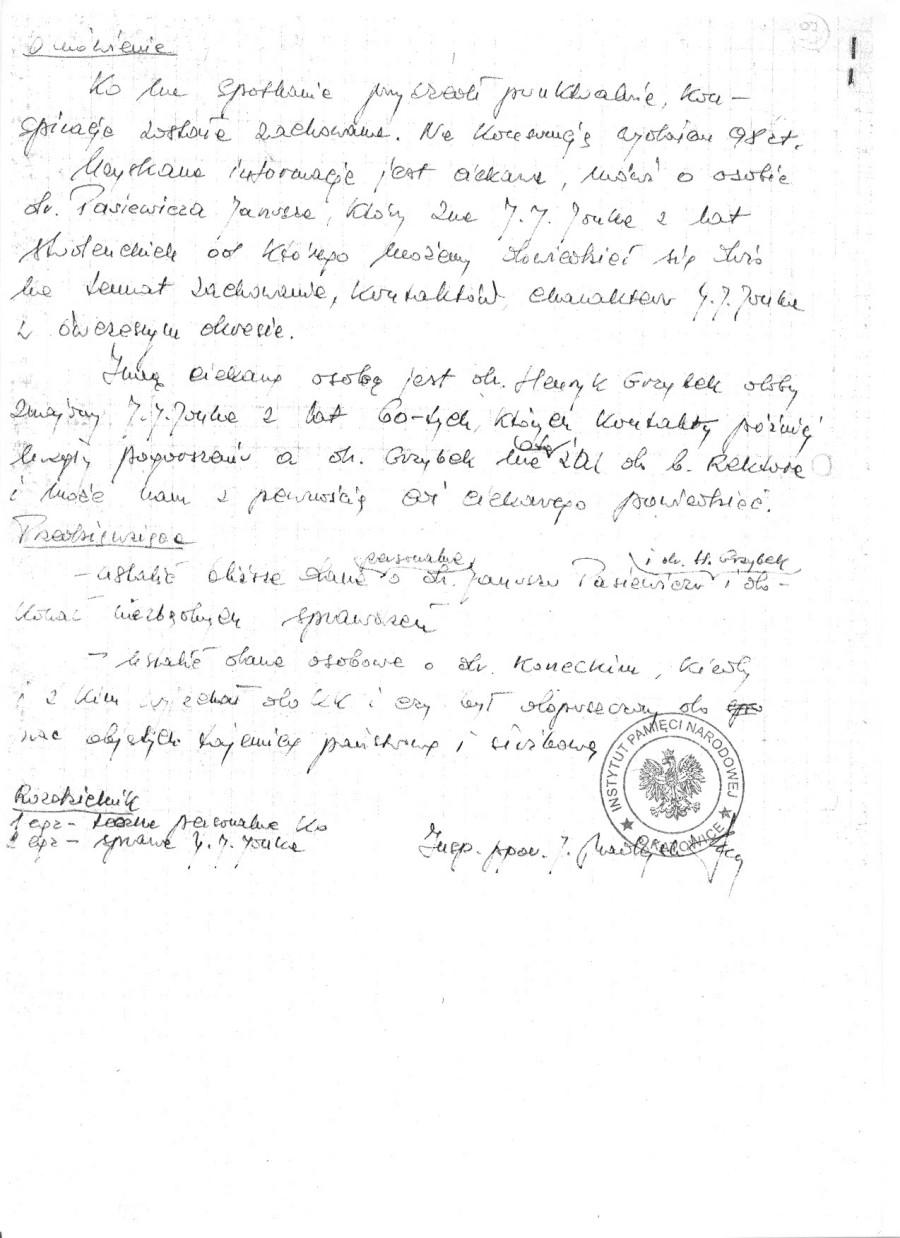 Omówienie
Ko na spotkanie przyszedł punktualnie, kon-
spiracja została zachowana. Na konsumcję wydałem 98 zł.
Uzyskana informacja jest ciekawa, mówi o osobie
dr. Pasiewicza Janusza, który zna J.J. Jonka z lat
studenckich od którego możemy dowiedzieć się dziś
na temat zachowania, kontaktów, charakteru J.J. Jonka
z ówczesnym okresie.
Inną ciekawą osobą jest dr. Henryk Grzybek dobry
znajomy J.J. Jonka z lat 60-tych, których kontakty później
uległy pogorszeniu a dr. Grzybek ma żal do b. Rektora
i może nam z pewnością coś ciekawego powiedzieć.
Przedsięwzięcia
- ustalić bliższe dane personalne o dr. Januszu Pasiewiczu i dr. H. Grzybek i do-
konać niezbędnych sprawdzeń
- ustalić dane osobowe o dr. Koneckim, kiedy
i z kim wyjechał do KK i czy był dopuszczony do
prac objętych tajemnicą państwową i służbową
Rozdzielnik
1 egz - teczka personalna Ko
1 egz - sprawa J.J. Jonka
Insp. ppor. J.
INSTYTUT PAMIĘCI NARODOWEJ
KATOWICE